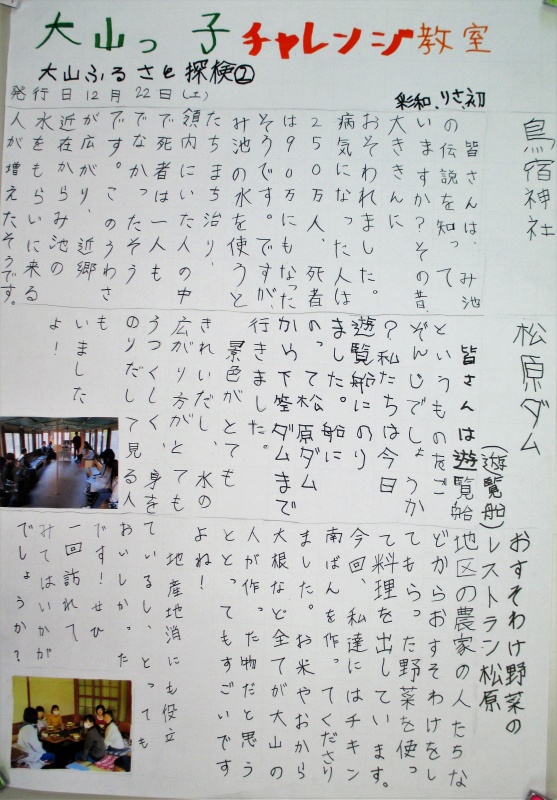 大山っ子チャレンジ教室
大山ふるさと探検②
発行日12月22日(土)
彩和、りさ、初
鳥宿神社
皆さんは、み池
の伝説を知って
いますか?その昔、
大ききんに
おそわれました。
病気になった人は
250万人、死者
は90万にもなった
そうです。ですが、
み池の水を使うと
たちまち治り、
領内にいた人の中
で死者は一人も
でなかったそう
です。このうわさ
が広がり、近郷
近在からみ池の
水をもらいに来る
人が増えたそうです。
松原ダム
(遊覧船)
皆さんは遊覧船
というものをご
ぞんじでしょうか
?私たちは今日
遊覧船にのり
ました。船に
のって松原ダム
から下筌ダムまで
行きました。
景色がとても
きれいだし、水の
広がり方がとても
うつくしく、身を
のりだして見る人
も
いました
よ!
おすそわけ野菜の
レストラン松原
地区の農家の人たちな
どからおすそわけをし
てもらった野菜を使っ
て料理を出しています。
今回、私達にはチキン
南ばんを作ってくださり
ました。お米やおから
大根など全てが大山の
人が作った物だと思う
ととってもすごいです
よね!
地産地消にも役立
ているし、とっても
おいしかった
です!ぜひ
一回訪れて
みてはいかが
でしょうか?